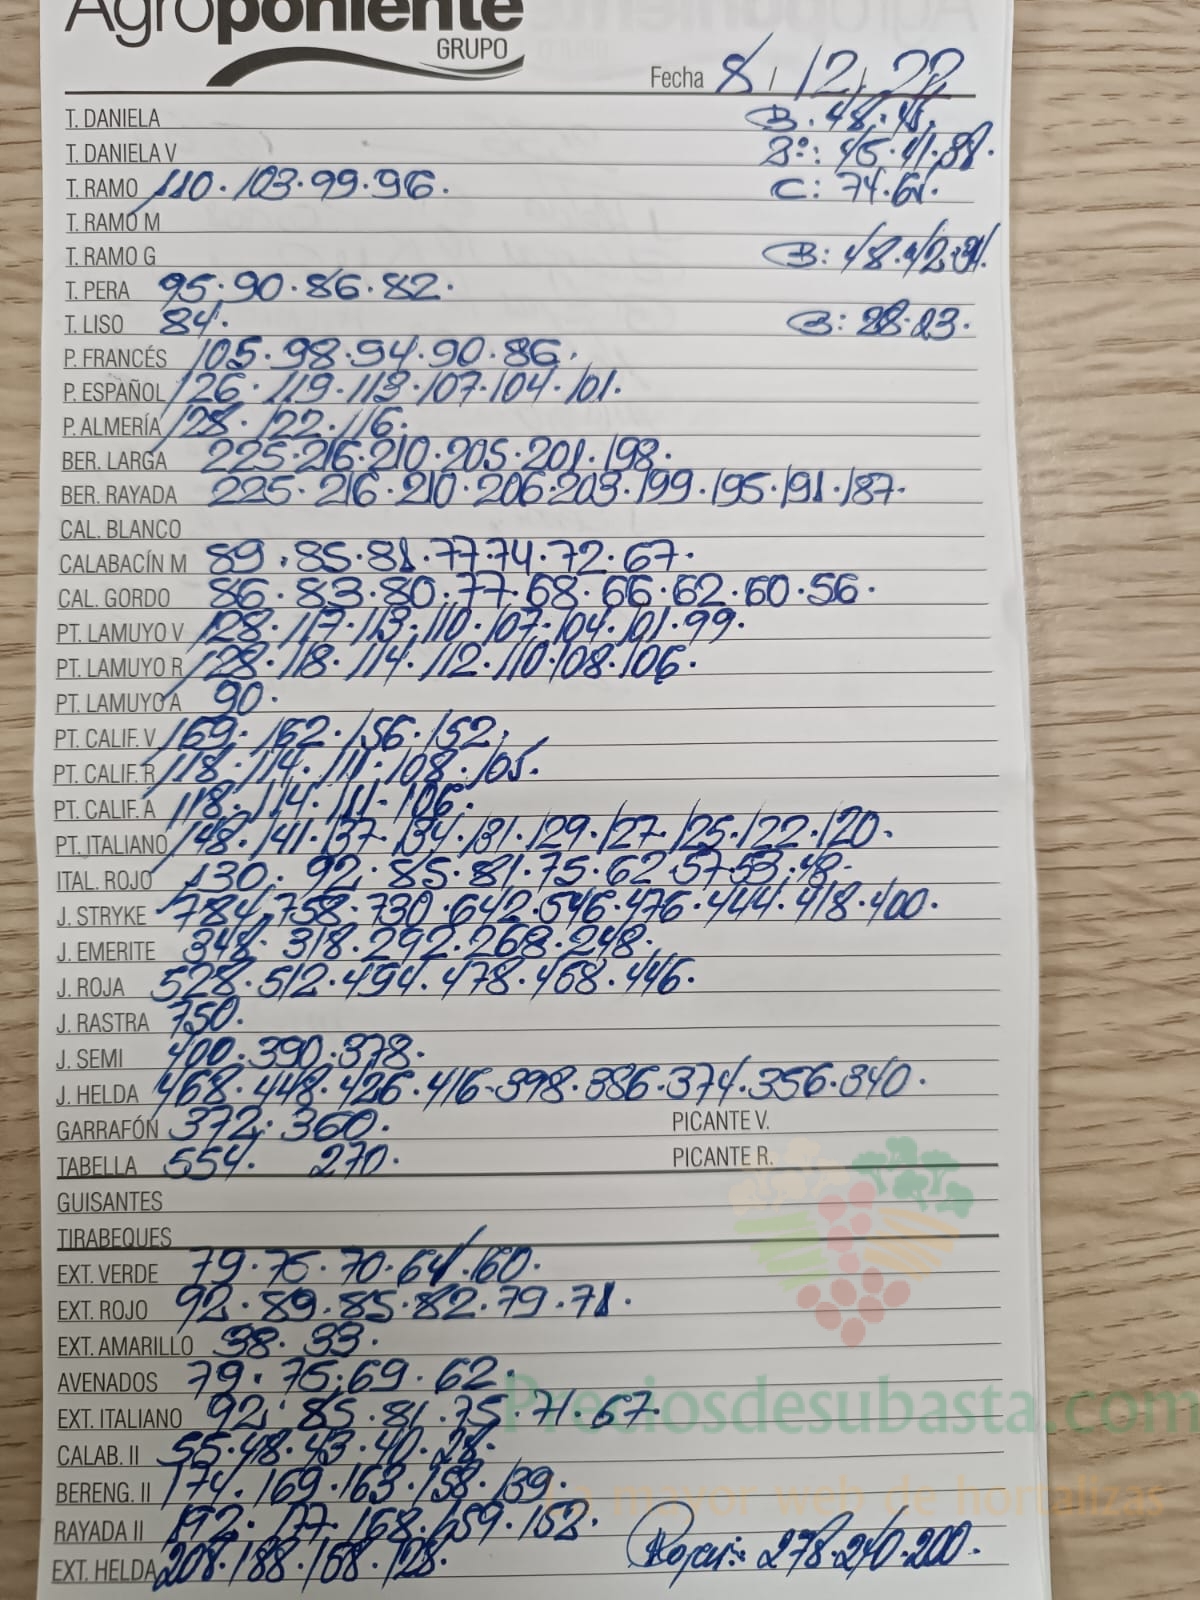 Agroponiente
GRUPO
Fecha 8/12/22
T. DANIELA B. 48. 45.
T. DANIELA V 3º: 45.41.38.
T. RAMO 110.103.99.96. C: 74.61.
T. RAMO M
T. RAMO G B: 48.42.31.
T. PERA 95.90.86.82.
T. LISO 84. B: 28.23.
P. FRANCÉS 105.98.94.90.86.
P. ESPAÑOL 126.119.113.107.104.101.
P. ALMERÍA 128.122.116.
BER. LARGA 225.216.210.205.201.198.
BER. RAYADA 225.216.210.206.203.199.195.191.187.
CAL. BLANCO
CALABACÍN M 89.85.81.77.74.72.67.
CAL. GORDO 86.83.80.77.68.66.62.60.56.
PT. LAMUYO V 128.117.113.110.107.104.101.99.
PT. LAMUYO R 128.118.114.112.110.108.106.
PT. LAMUYO A 90.
PT. CALIF. V 169.162.156.152.
PT. CALIF. R 118.114.111.108.105.
PT. CALIF. A 118.114.111.106.
PT. ITALIANO 148.141.137.134.131.129.127.125.122.120.
ITAL. ROJO 130.92.85.81.75.62.57.53.48.
J. STRYKE 784.758.730.642.546.476.444.418.400.
J. EMERITE 348.318.292.268.248.
J. ROJA 528.512.494.478.468.446.
J. RASTRA 750.
J. SEMI 400.390.378.
J. HELDA 468.448.426.416.398.386.374.356.340.
GARRAFÓN 372.360. PICANTE V.
TABELLA 554. 270. PICANTE R.
GUISANTES
TIRABEQUES
EXT. VERDE 79.75.70.64.60.
EXT. ROJO 92.89.85.82.79.71.
EXT. AMARILLO 38.33.
AVENADOS 79.75.69.62.
EXT. ITALIANO 92.85.81.75.71.67.
Preciosdesubasta.com
CALAB. II 55.48.43.40.28.
BERENG. II 174.169.163.158.139.
La mayor web de hortalizas
RAYADA II 192.177.168.159.152.
EXT. HELDA 208.188.158.128. Rojas: 278.240.200.